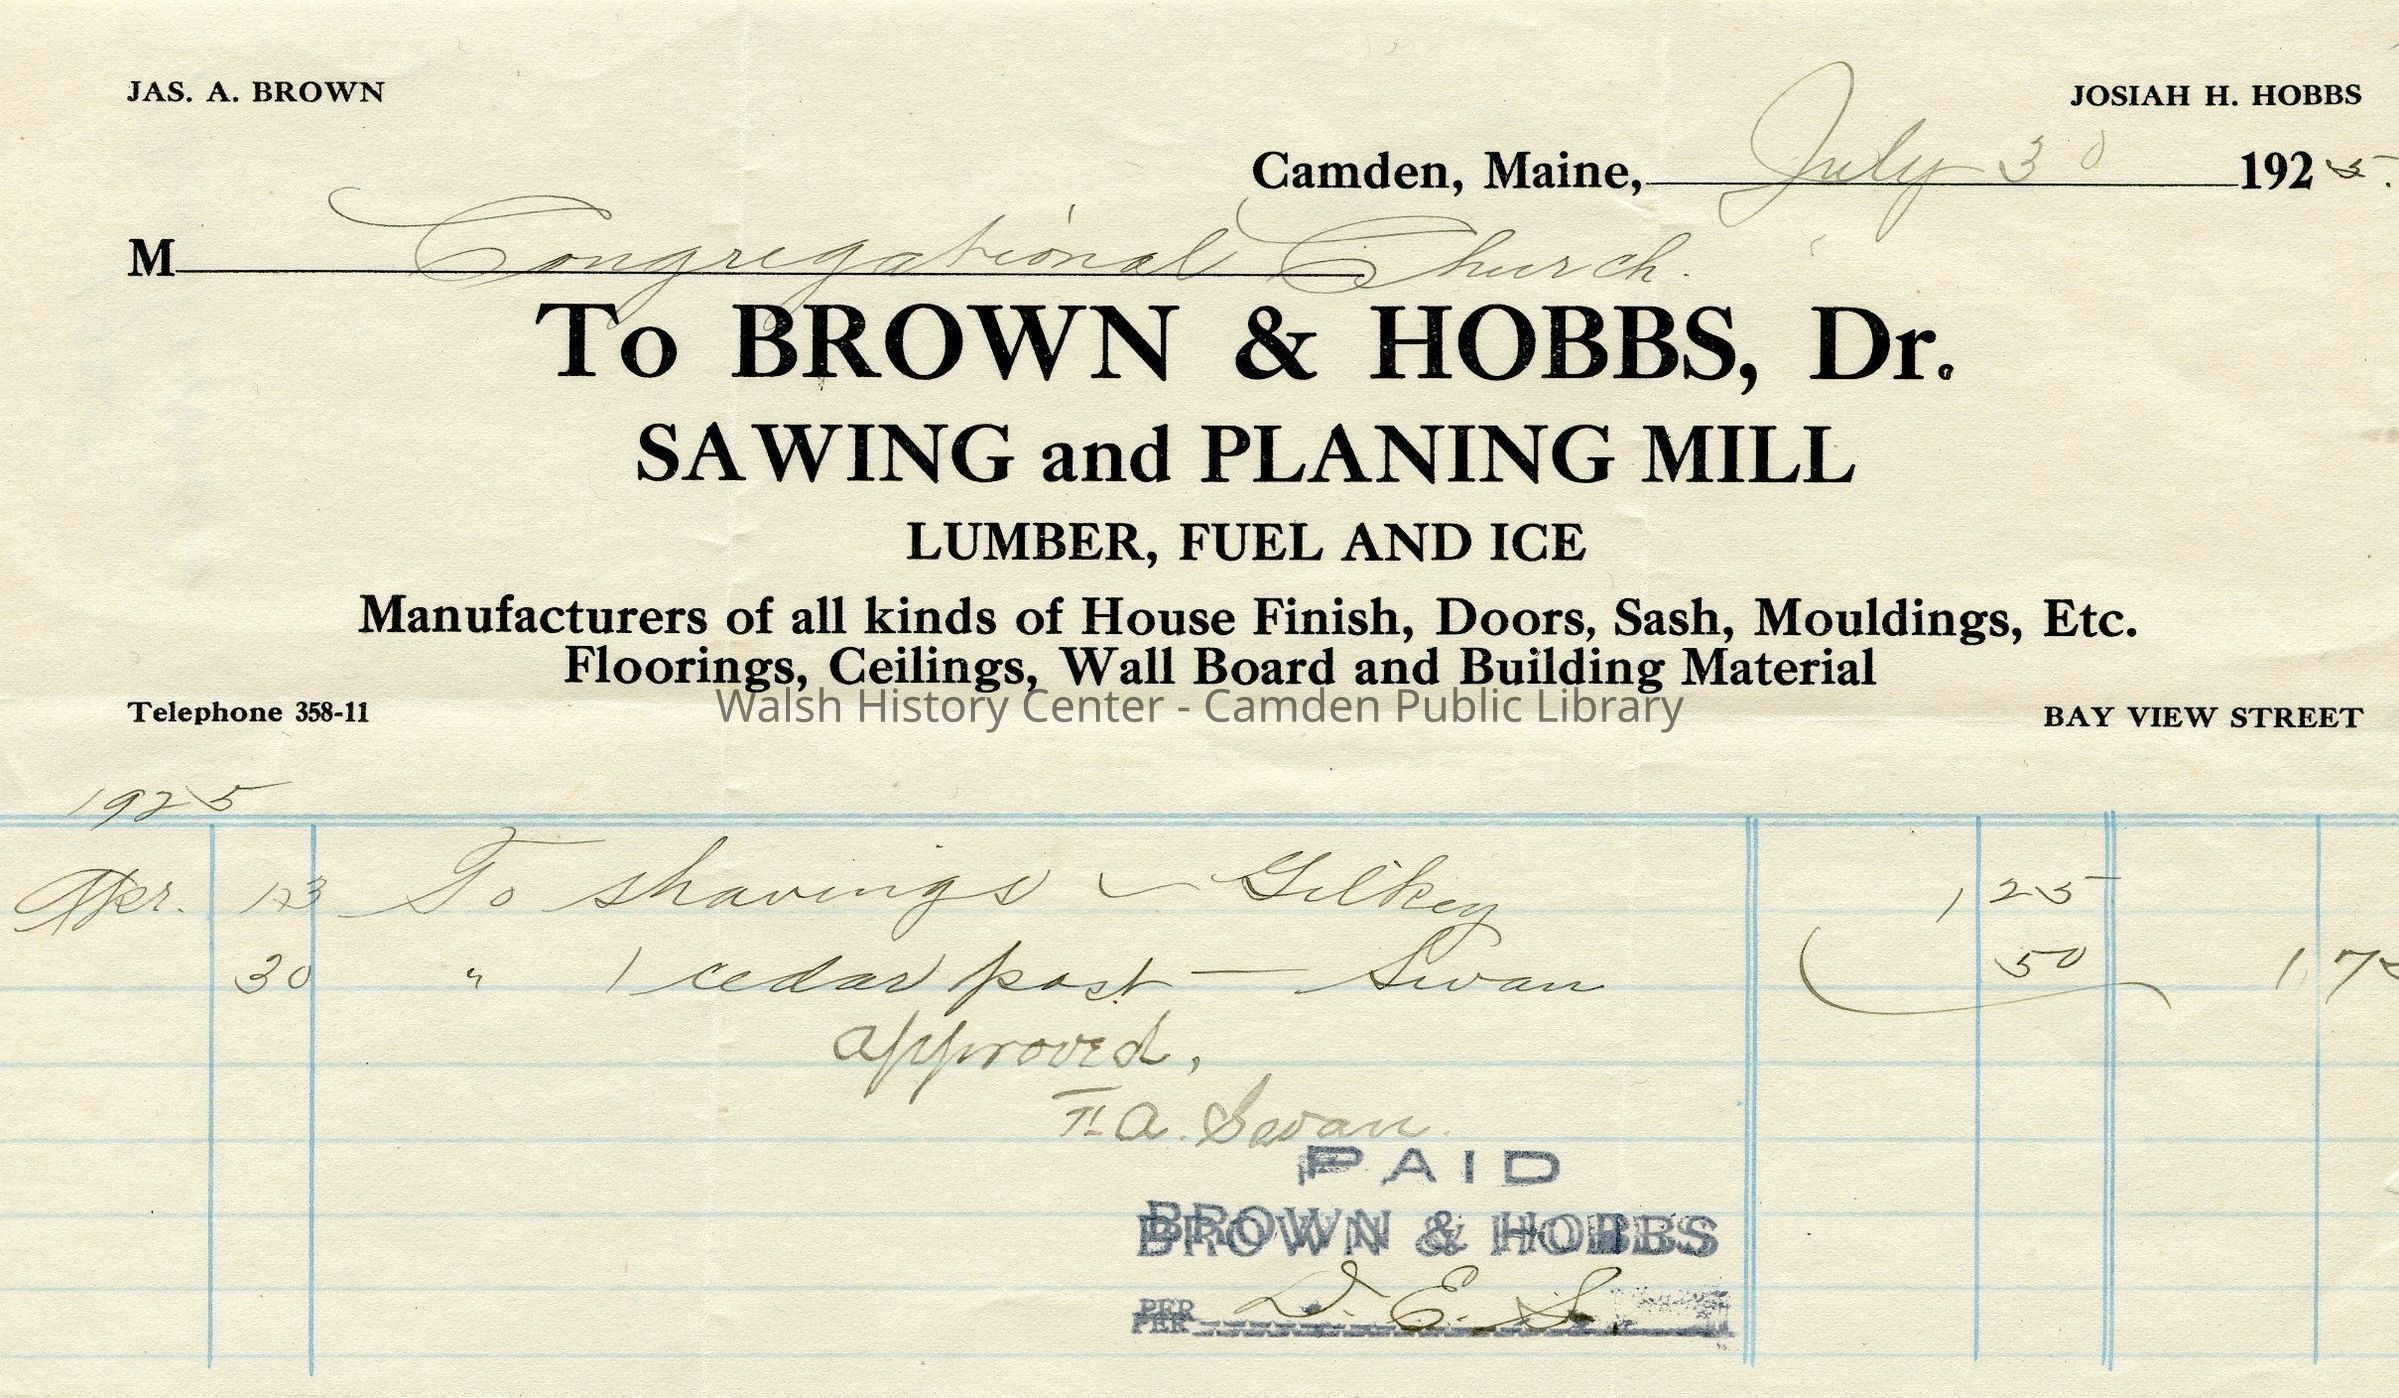 JAS. A. BROWN
JOSIAH H. HOBBS
Camden, Maine, July 30 1925.
M Congregational Church.
To BROWN & HOBBS, Dr.
SAWING and PLANING MILL
LUMBER, FUEL AND ICE
Manufacturers of all kinds of House Finish, Doors, Sash, Mouldings, Etc.
Floorings, Ceilings, Wall Board and Building Material
Walsh History Center - Camden Public Library
Telephone 358-11
BAY VIEW STREET
1925
Apr. To shavings — Gilkey 1 25
30 " 1 cedar post — Swan 50 1 75
approved,
A. Swan.
PAID
BROWN & HOBBS
PER D. E. S.